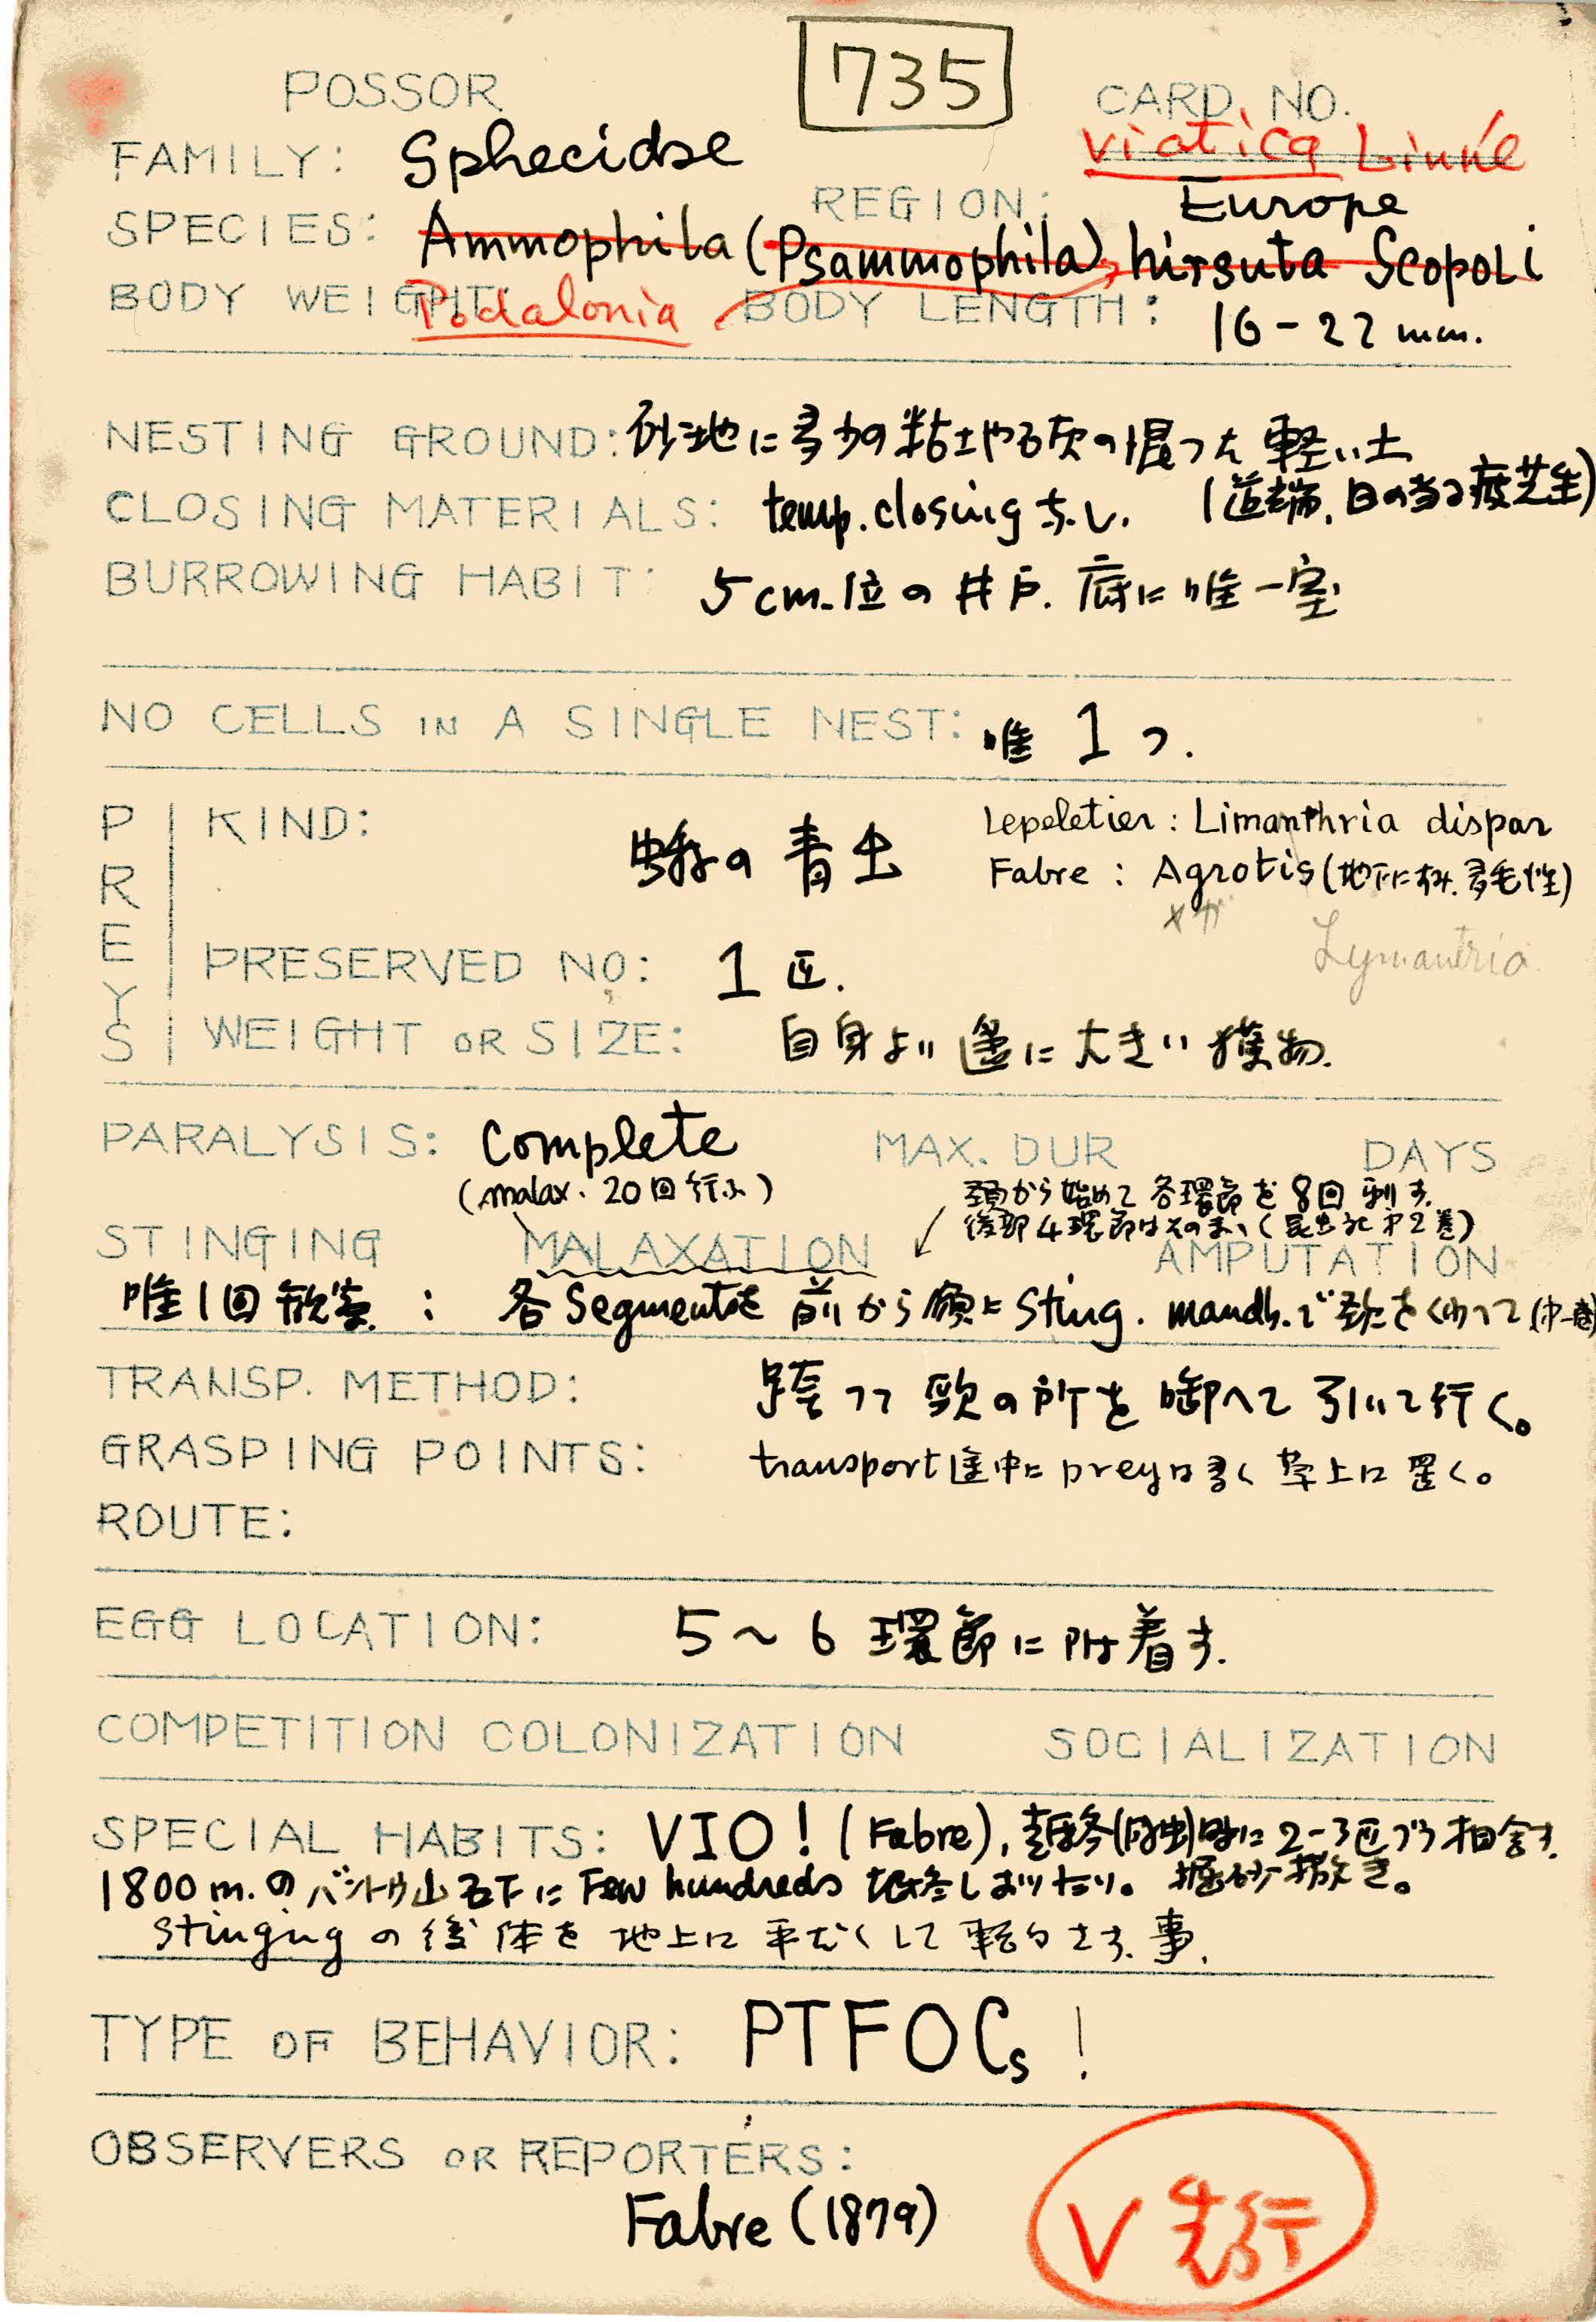 735
POSSOR
CARD. NO.
viatica Linné
FAMILY: Sphecidae
REGION: Europe
SPECIES: Ammophila (Psammophila) hirsuta Scopoli
Podalonia
BODY WEIGHT: BODY LENGTH: 16-22 mm.
NESTING GROUND: 砂地に多少の粘土や石灰の混った軽い土
(道端、日の当る疲芝生)
CLOSING MATERIALS: temp. closing なし.
BURROWING HABIT: 5cm.位の井戸. 底に唯一室
NO CELLS IN A SINGLE NEST: 唯1つ.
PREYS
KIND: 蛾の青虫
Lepeletier: Limanthria dispar
Fabre: Agrotis (地下に棲, 多毛性)
Lymantria
PRESERVED NO: 1匹.
WEIGHT OR SIZE: 自身より遥に大きい獲物.
PARALYSIS: Complete
(malax. 20回行ふ)
MAX. DUR DAYS
頚から始めて各環節を8回刺す.
後部4環節はそのまゝ(昆虫記 才2巻)
STINGING MALAXATION AMPUTATION
唯1回観察: 各Segmentを前から順にSting. mandb.で頚をくわへて
TRANSP. METHOD: 跨って頸の所を啣へて引いて行く。
GRASPING POINTS: transport途中にpreyは多く草上に置く。
ROUTE:
EGG LOCATION: 5~6環節に附着す.
COMPETITION COLONIZATION SOCIALIZATION
SPECIAL HABITS: VIO! (Fabre), 越冬 2-3匹づつ相会す.
1800m.のバントウ山石下にFew hundreds 越冬しおりたり。掘砂撒き。
Stingingの後体を地上に平たくして転りまわる事.
TYPE OF BEHAVIOR: PTFOCs!
OBSERVERS OR REPORTERS:
Fabre (1879)
V先行